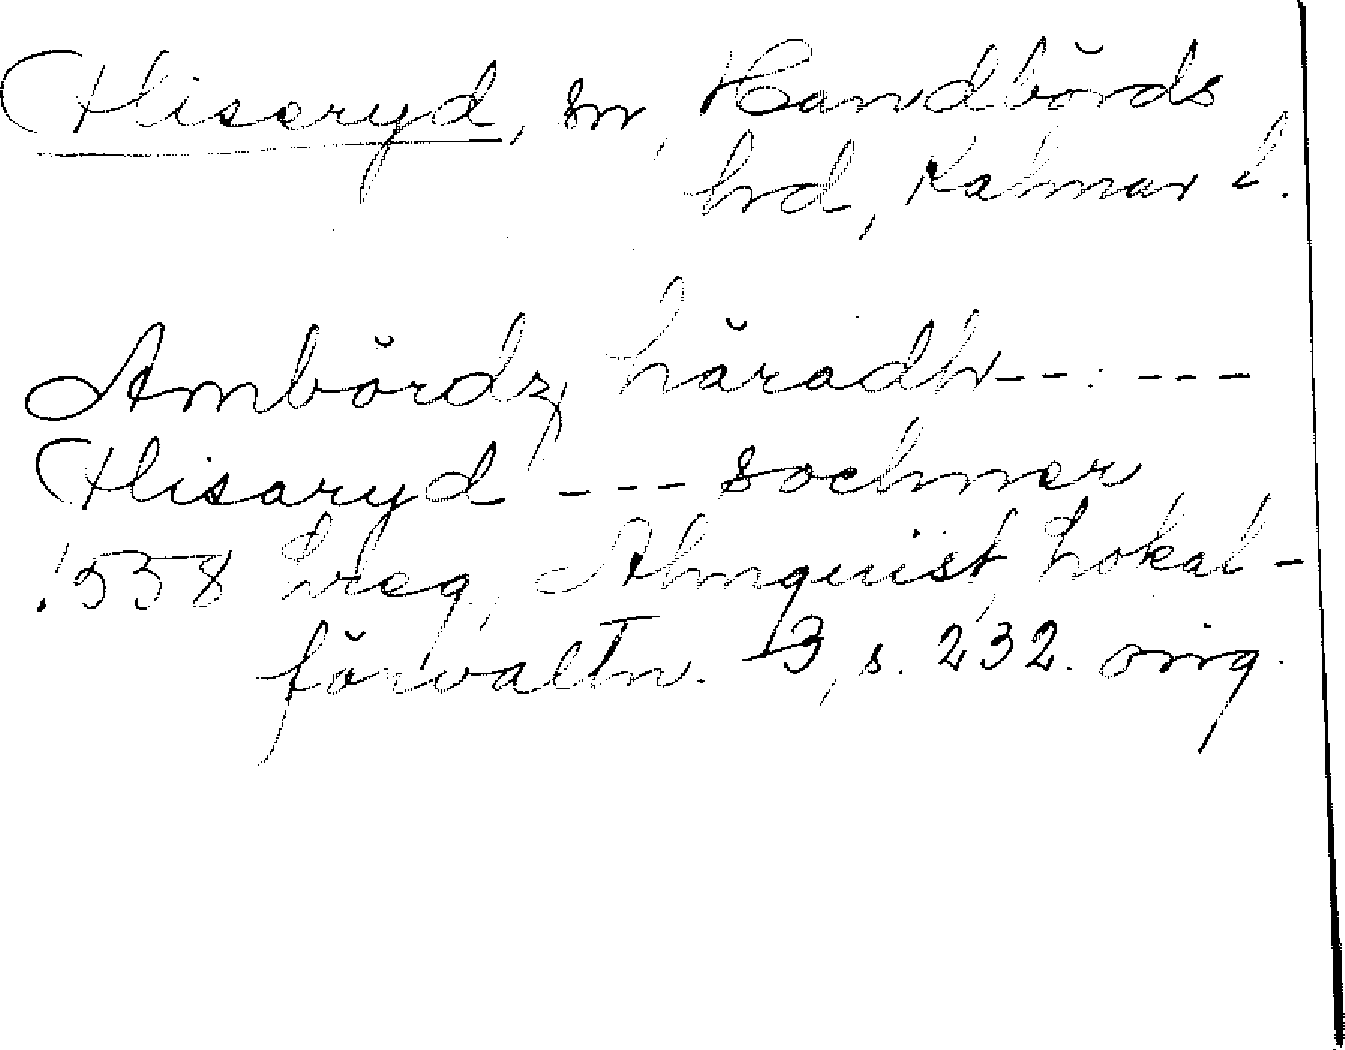 Hliseryd, sn, Handbörds
hrd, Kalmar l.
Ambördz häradh --- ---
Hlisaryd --- sochner
1558 Lreg, Almquist, Lokal-
förvaltn. 3, s. 232. orig.